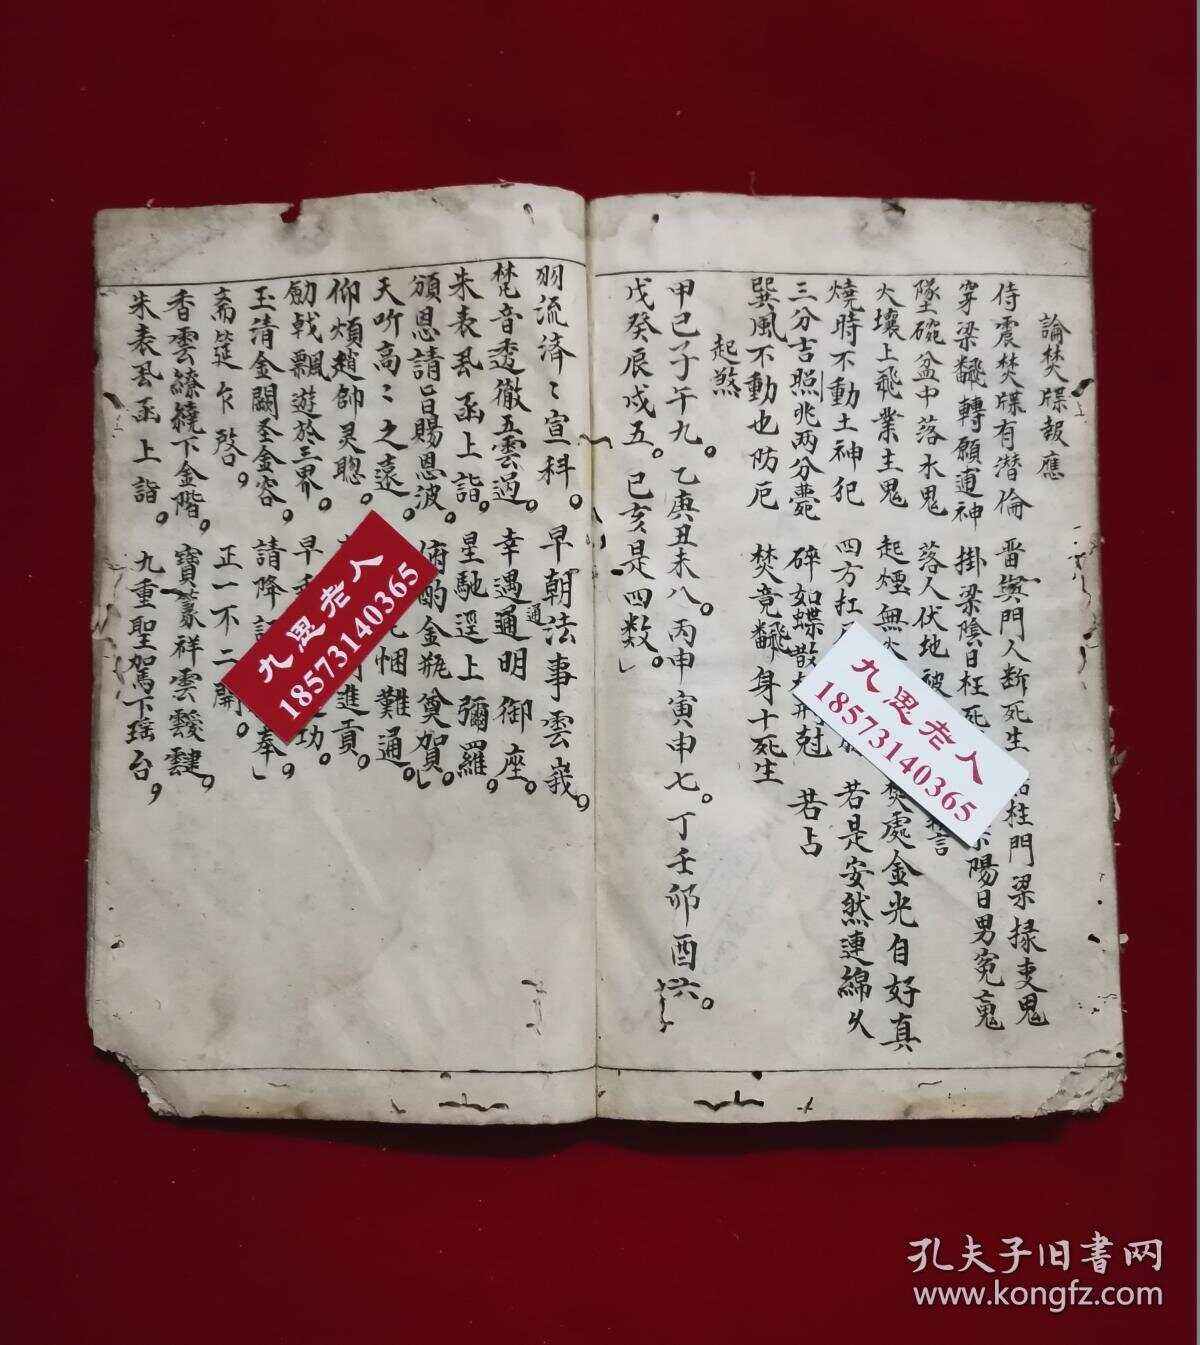 論焚牒報應
侍震焚牒有潜倫 雷 門人断死生 柱門梁掾吏鬼
穿梁飜轉願逋神 掛梁陰日枉死 陽日男冤鬼
墜碗盆中落水鬼 落人伏地 言
火壤上飛業主鬼 起煙無 焚處金光自好真
燒時不動土神犯 四方扛 若是安然連綿久
三分吉照兆两分 碎如蝶散 尅 若占
巽風不動也防厄 焚竟飜身十死生
起煞
甲己子午九。乙庚丑未八。丙申寅申七。丁壬卯酉六。
戊癸辰戌五。巳亥是四数。
羽流濟〻宣科。早朝法事雲 。
梵音透徹五雲過。幸遇通明御座。
通
朱表 函上詣。星馳逕上彌羅。
頒恩請旨賜恩波。俯酌金瓶奠賀。
天听高〻之遠。 悃難通。
仰煩趙帥灵聰。 進貢。
劬戟飄遊於三界。早 功。
玉清金闕圣金容。請降 奉
斋筵乍啓。正一不二開。
香雲繚繞下金階。寶篆祥雲靉靆。
朱表 函上詣。九重聖駕下瑶台。
九思老人
18573140365
九思老人
18573140365
孔夫子旧書网
www.kongfz.com